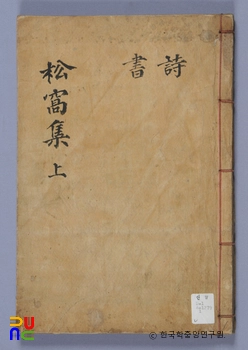 詩
書
松窩集 上
ⓒ 한국학중앙연구원